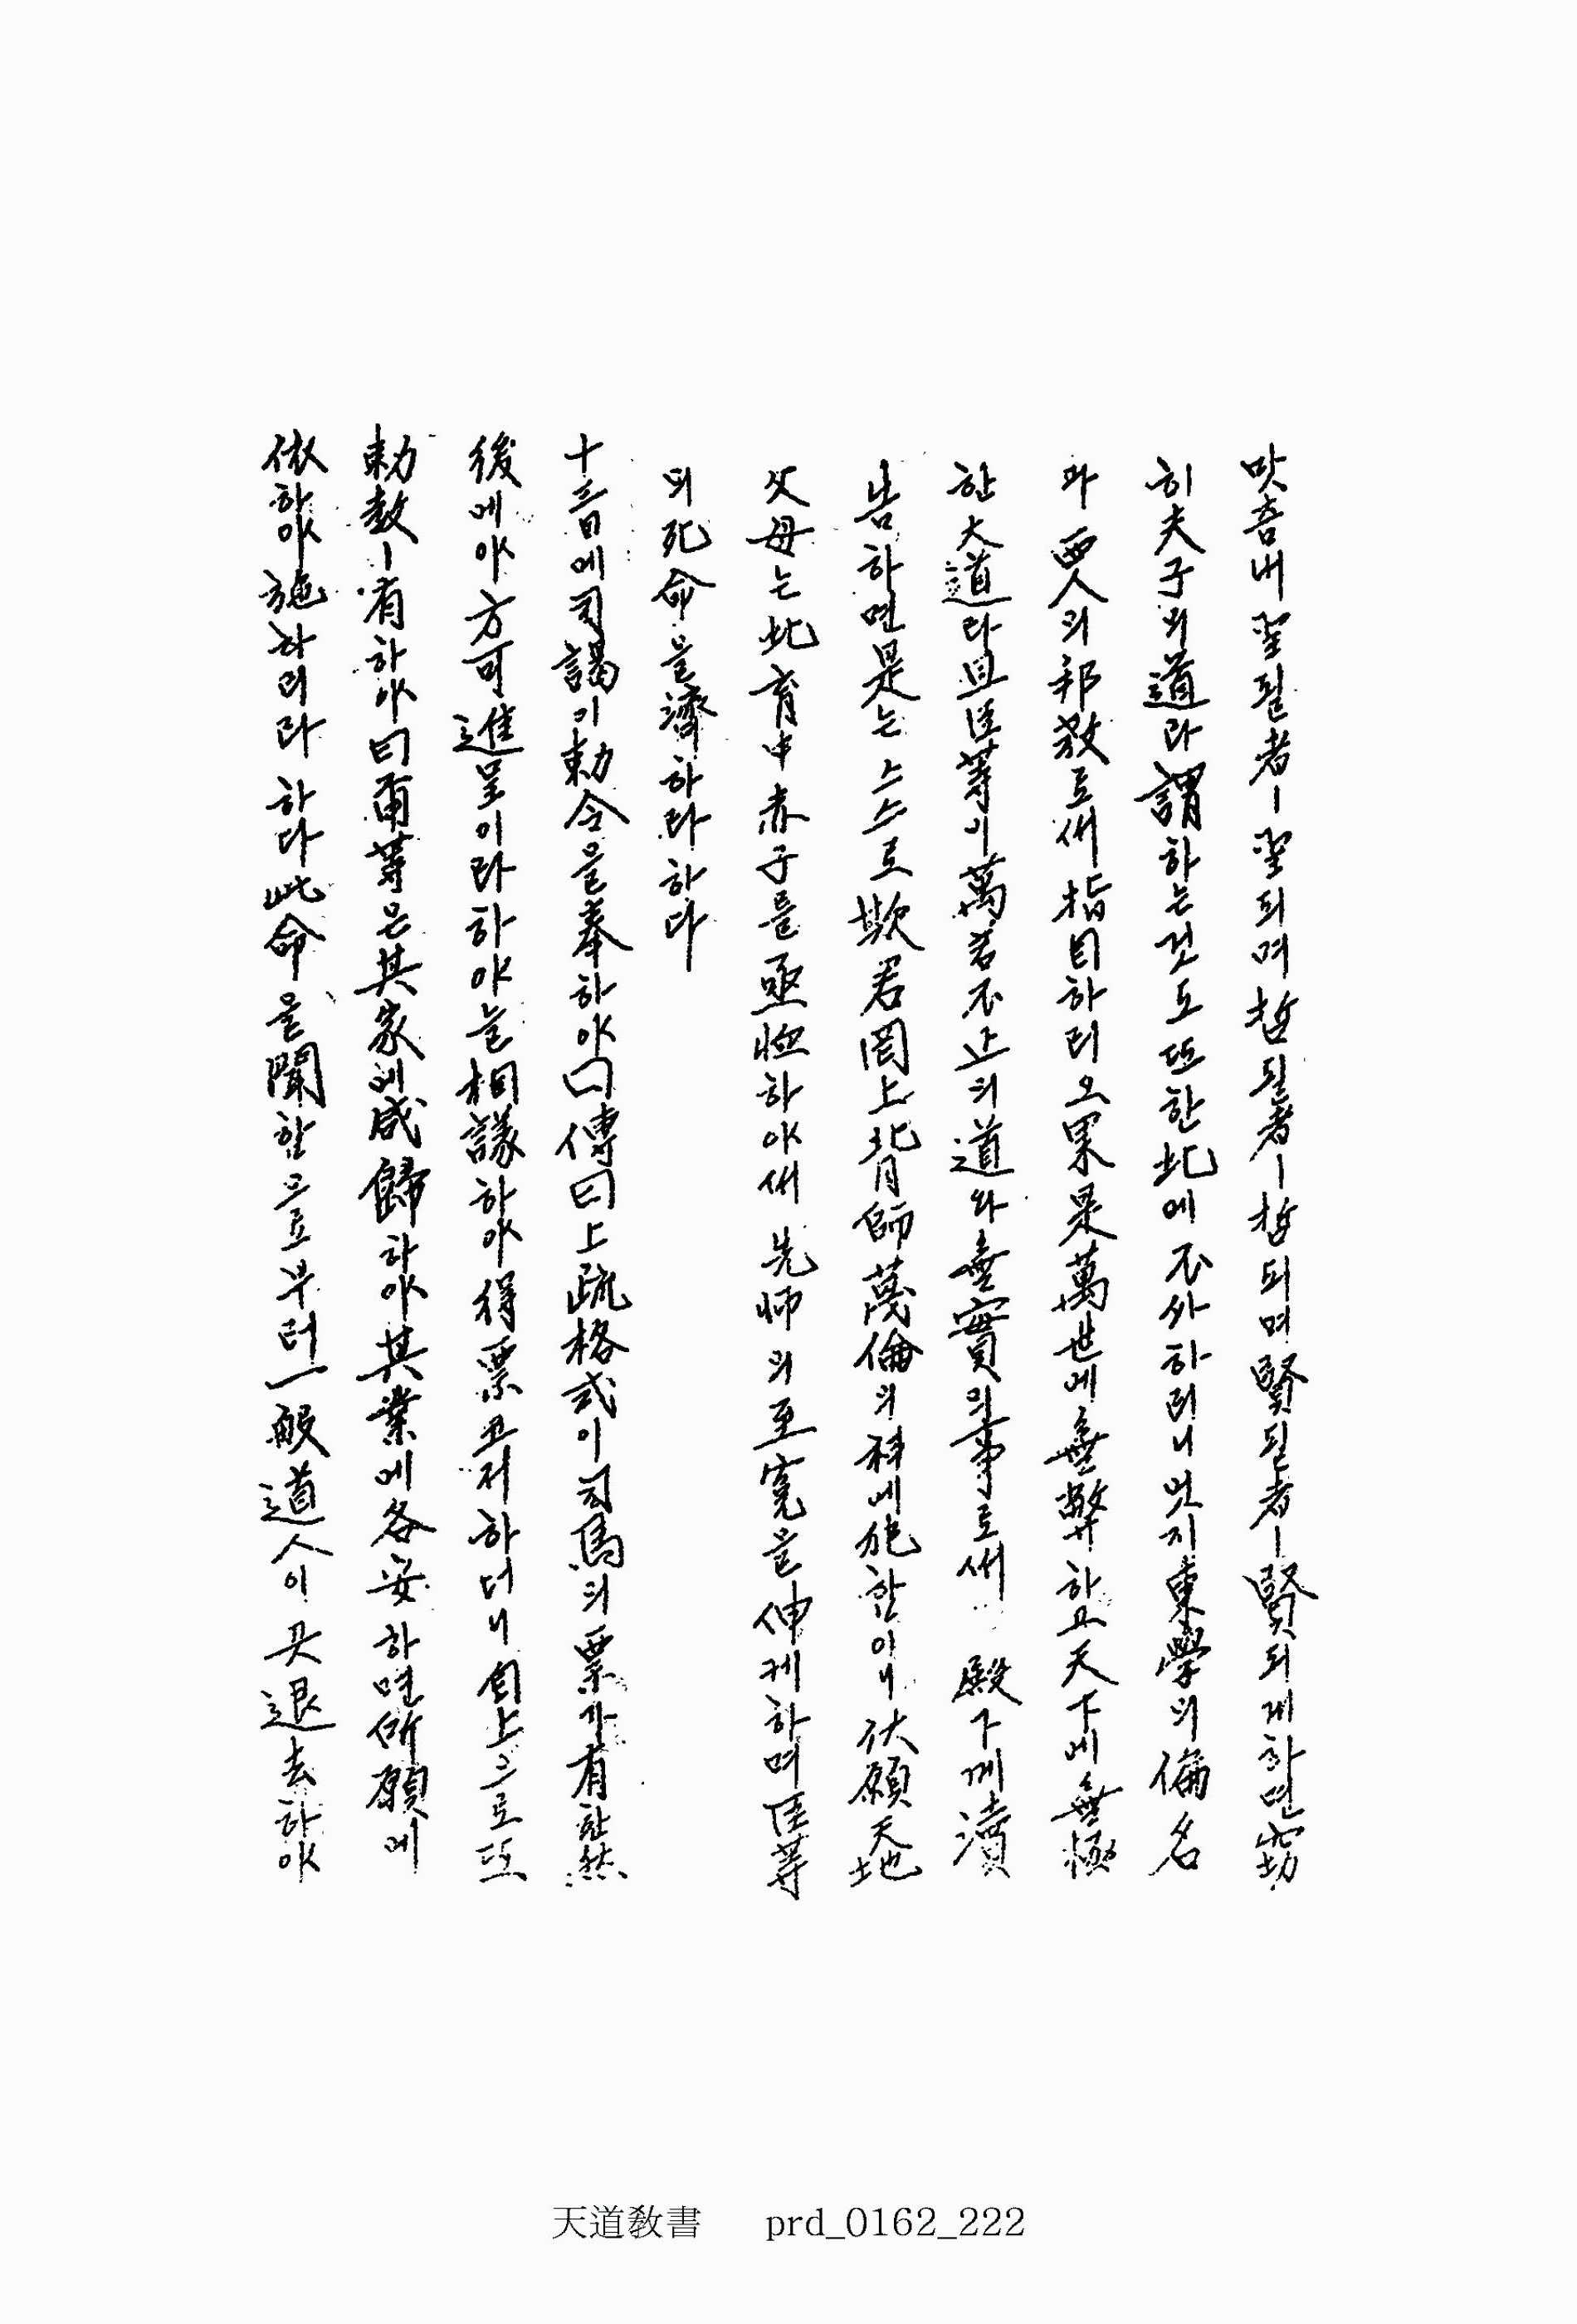 맛츰내 聖될者ㅣ聖되며 哲될者ㅣ哲되며 賢될者ㅣ賢되게하면 窃
히夫子의道라謂하는것도또한此에不外하려니엇지東學의偏名
과 西人의邪敎로써 指目하리오果是萬世에無弊하고天下에無極
한大道라且臣等이萬若不正의道와無實의事로써 殿下께瀆
告하면是는스스로欺君罔上背師蔑倫의科에犯함이니伏願天地
父母는此育中赤子를亟恤하야써 先師의至寃을伸케하며臣等
의死命을濟하라하다
十三日에司謁이勅令을奉하야曰傳曰上疏格式이司馬의票가有한然
後에야方可進呈이라하야늘相議하야得票코저하더니自上으로또
勅敎ㅣ有하야曰爾等은其家에咸歸하야其業에各安하면所願에
依하야施하리라하다此命을聞함으로부터一般道人이곳退去하야
天道敎書 prd_0162_222